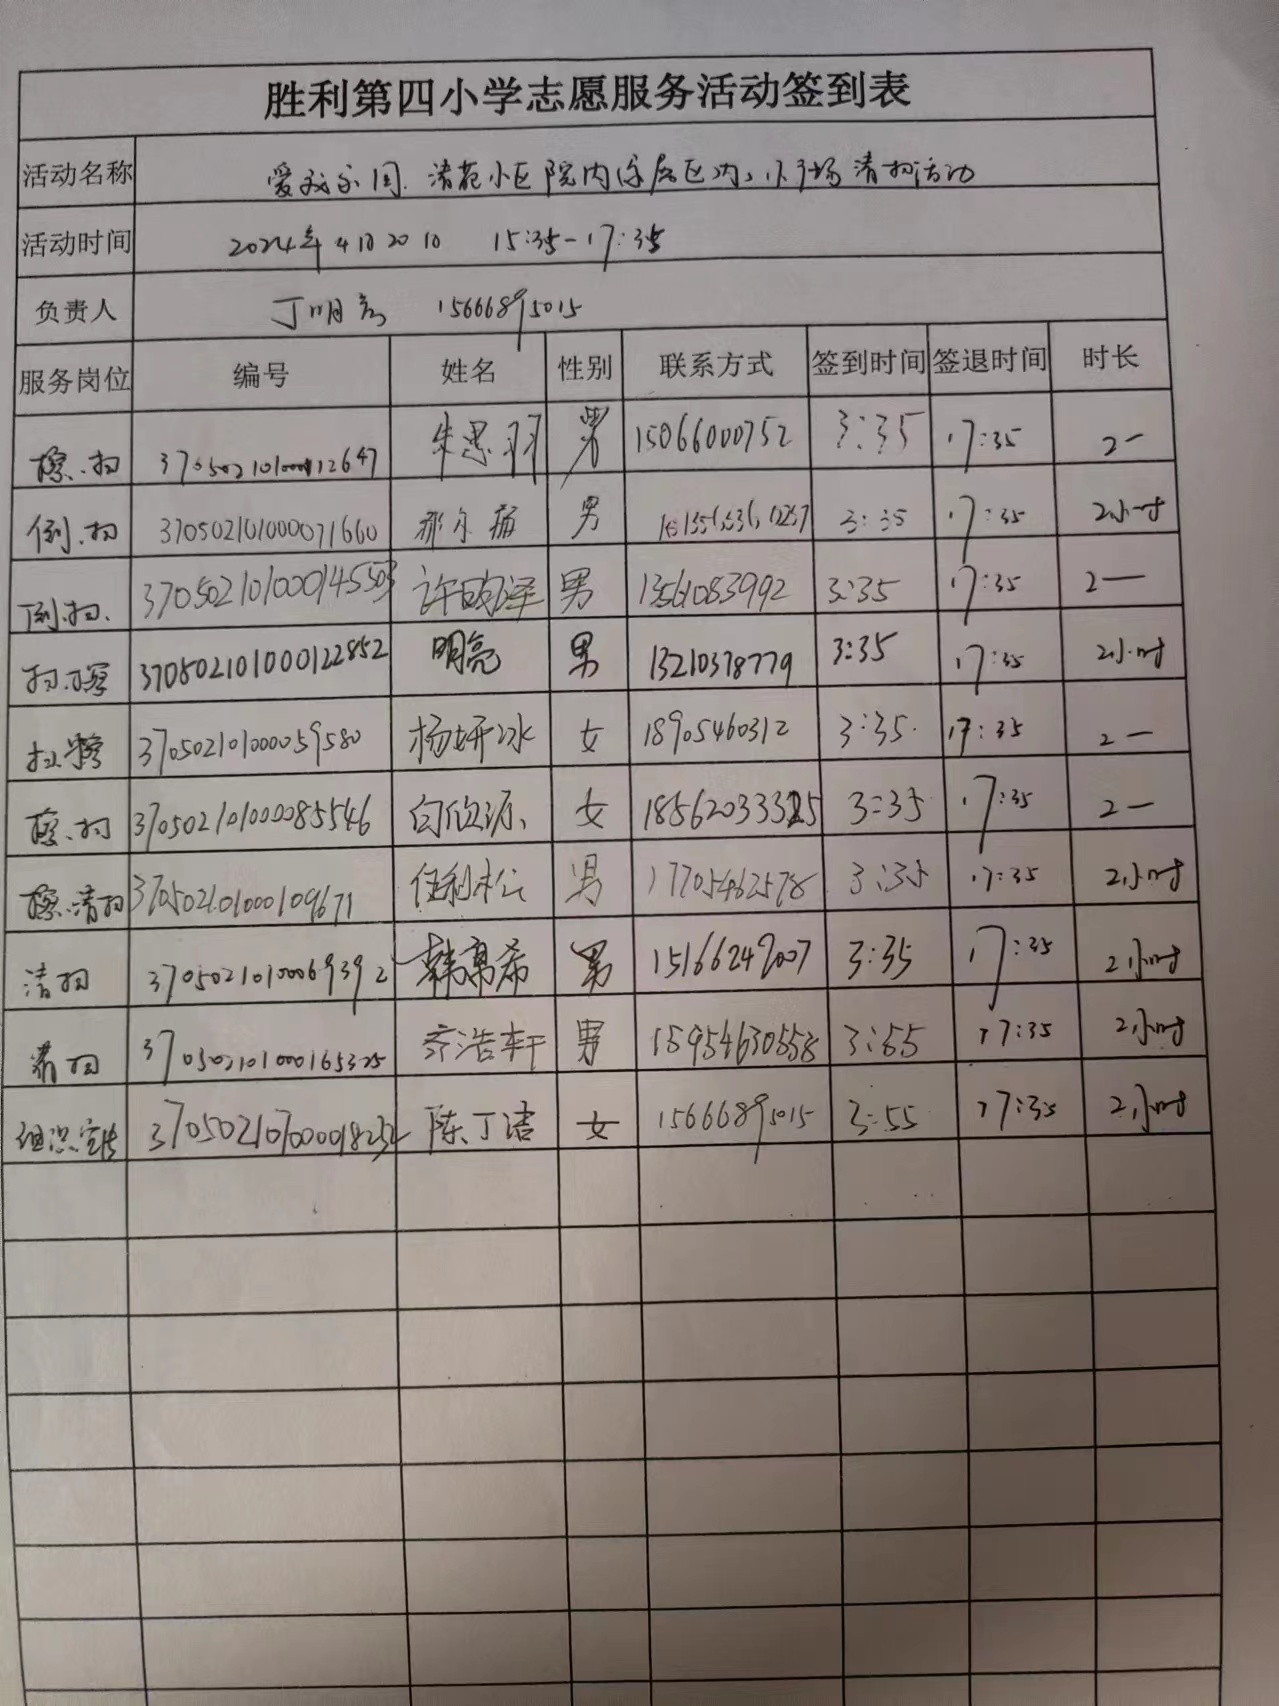 胜利第四小学志愿服务活动签到表
活动名称 爱我家园.清苑小区院内 区内,小广场清扫活动
活动时间 2024年4月20日 15:35-17:35
负责人 丁明 15666895015
服务岗位 编号 姓名 性别 联系方式 签到时间 签退时间 时长
擦.扫 3705021010000112647 朱思羽 男 15066000752 3:35 17:35 2一
倒.扫 3705021010000071660 男 3:35 17:35 2小时
倒.扫. 3705021010000145503 许昀泽 男 13561083992 3:35 17:35 2一
扫.擦 3705021010000122852 明亮 男 13210378779 3:35 17:35 2小时
3705021010000059580 杨妍冰 女 18905460312 3:35 17:35 2一
擦.扫 3705021010000085546 白欣源 女 3:35 17:35 2一
擦.清扫 3705021010000109671 任利松 男 17705462578 3:35 17:35 2小时
清扫 370502101000069392 韩禹希 男 15166249007 3:35 17:35 2小时
清扫 3705021010000165325 齐浩轩 男 15954630558 3:55 17:35 2小时
组织 陈丁洁 女 15666895015 3:55 17:35 2小时